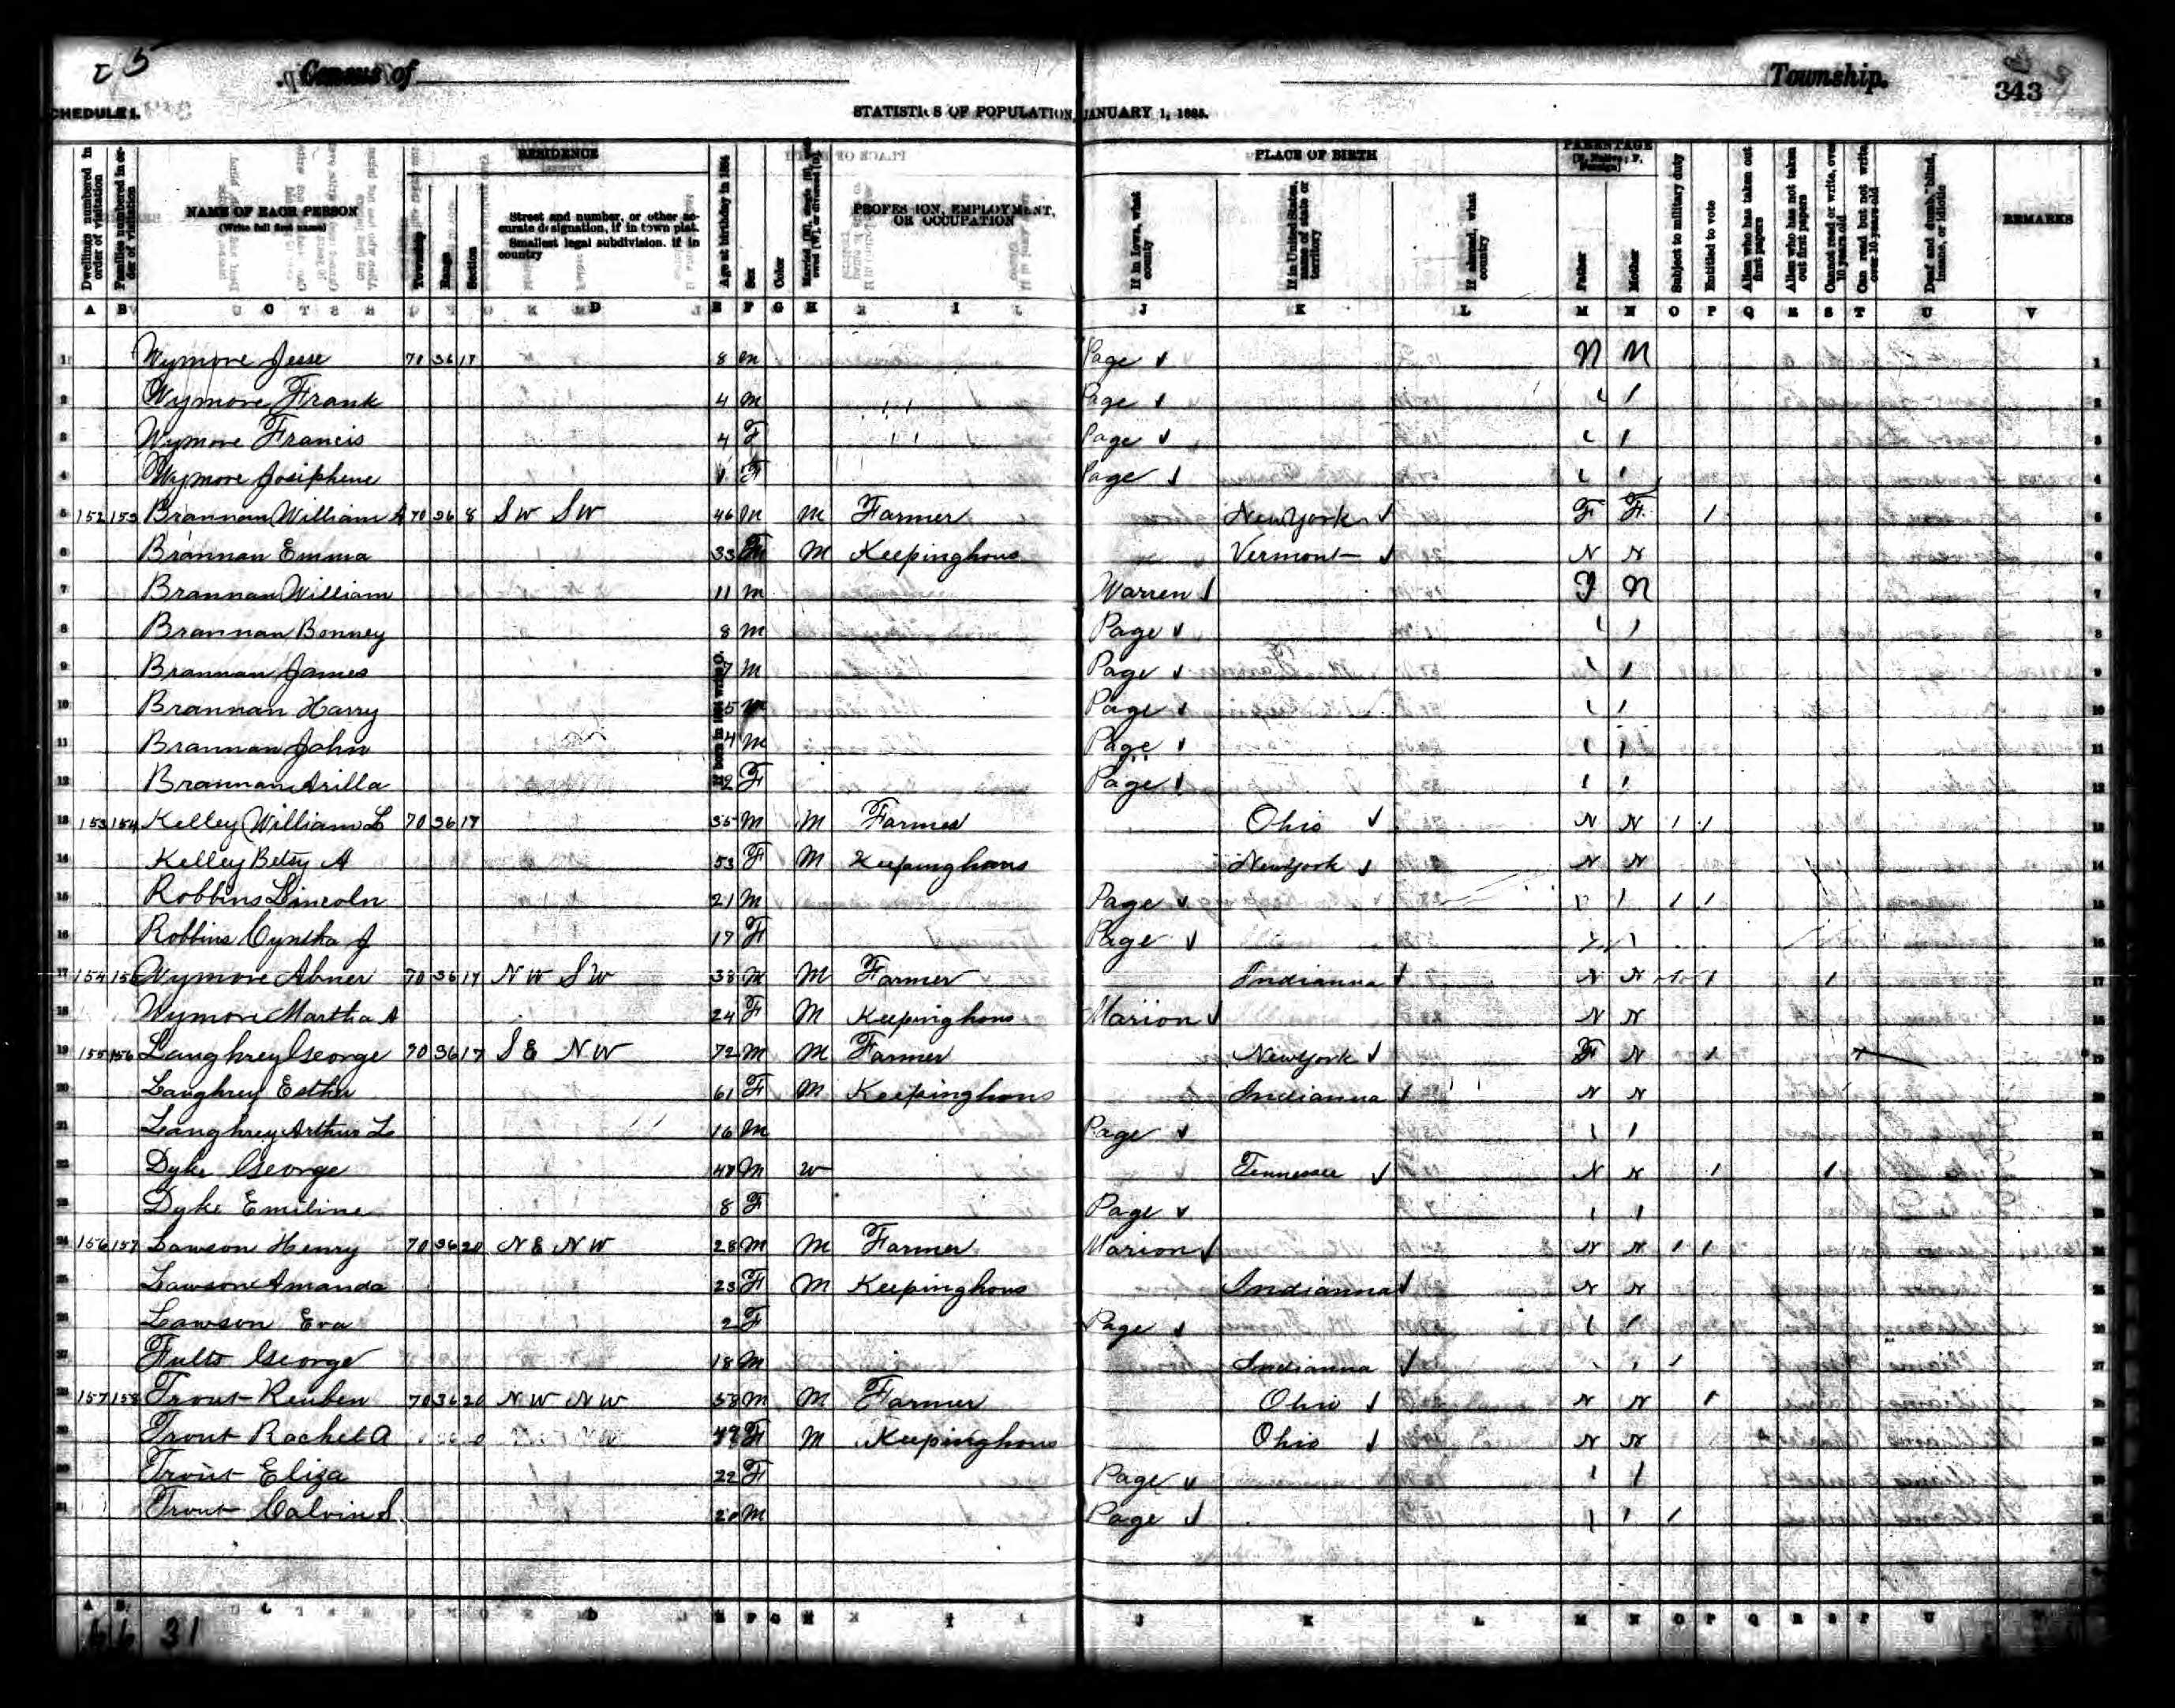 25
Census of Township. 343
SCHEDULE 1. STATISTICS OF POPULATION, JANUARY 1, 1885.
RESIDENCE PLACE OF BIRTH PARENTAGE
Dwellings numbered in order of visitation
Families numbered in order of visitation
NAME OF EACH PERSON
(Write full first name)
Township
Range
Section
Street and number, or other accurate designation, if in town plat. Smallest legal subdivision, if in country
Age at birthday in 1884
Sex
Color
PROFESSION, EMPLOYMENT, OR OCCUPATION
If in Iowa, what county
If in United States, name of state or territory
If abroad, what country
Father
Mother
Subject to military duty
Entitled to vote
Alien who has taken out first papers
Alien who has not taken out first papers
Cannot read or write, over 10 years old
Can read but not write, over 10 years old
Deaf and dumb, blind, insane, or idiotic
REMARKS
A B C D E F G H I J K L M N O P Q R S T U V
1 Wymore Jesse 70 36 17 8 M Page N N 1
2 Wymore Frank 4 M Page 2
3 Wymore Francis 4 F Page 3
4 Wymore Josiphene 1 F Page 4
5 152 153 Brannan William A 70 36 8 SW SW 46 M M Farmer New York F F 1 5
6 Brannan Emma 33 F M Keepinghous Vermont N N 6
7 Brannan William 11 M Warren F N 7
8 Brannan Bonney 8 M Page 8
9 Brannan James 7 M Page 9
10 Brannan Harry 5 M Page 10
11 Brannan John 4 M Page 11
12 Brannan Arilla 2 F Page 12
If born in 1884 write 0.
13 153 154 Kelley William L 70 36 17 55 M M Farmer Ohio N N 1 1 13
14 Kelley Betsy A 53 F M Keepinghous New York N N 14
15 Robbins Lincoln 21 M Page 1 1 15
16 Robbins Cyntha J 17 F Page 16
17 154 155 Wymore Abner 70 36 17 NW SW 38 M M Farmer Indianna N N 1 1 1 17
18 Wymore Martha A 24 F M Keepinghous Marion N N 18
19 155 156 Laughrey George 70 36 17 SE NW 72 M M Farmer New York F N 1 19
20 Laughrey Esther 61 F M Keepinghous Indianna N N 20
21 Laughrey Arthur L 16 M Page 21
22 Dyke George 47 M W Tennessee N N 1 1 22
23 Dyke Emiline 8 F Page 23
24 156 157 Lawson Henry 70 36 20 NE NW 28 M M Farmer Marion N N 1 1 24
25 Lawson Amanda 23 F M Keepinghous Indianna N N 25
26 Lawson Eva 2 F Page 26
27 Fults George 18 M Indianna 1 27
28 157 158 Trout Reuben 70 36 20 NW NW 58 M M Farmer Ohio N N 1 28
29 Trout Rachel A F M Keepinghous Ohio N N 29
30 Trout Eliza 22 F Page 30
31 Trout Calvin S. 20 M Page 1 31
A B C D E F G H I J K L M N O P Q R S T U V
6 6 31